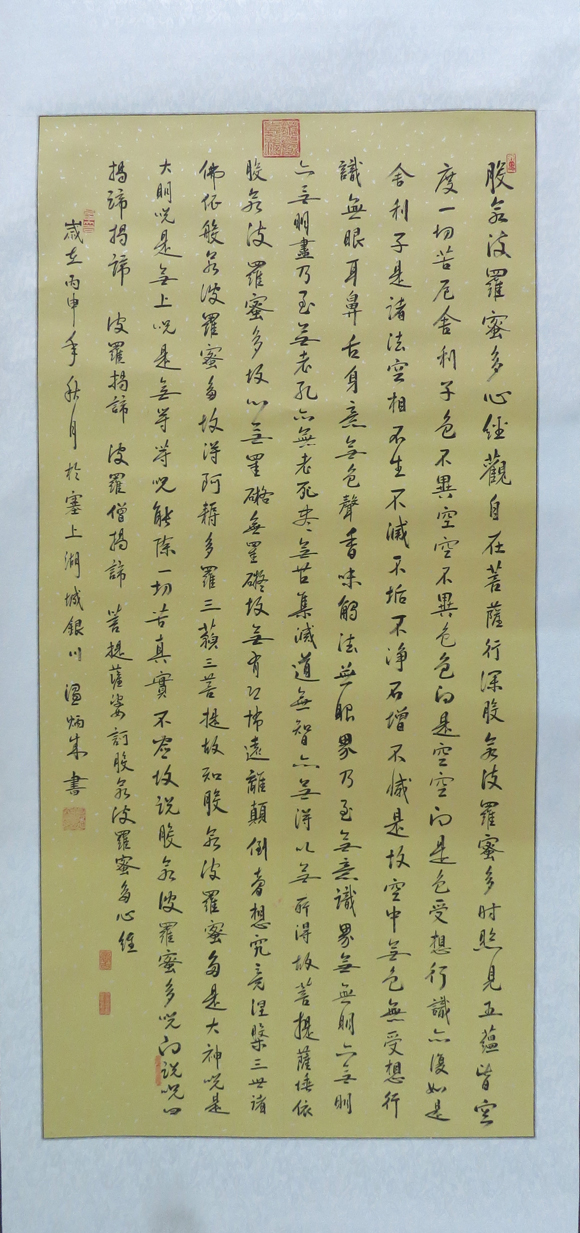 般若波羅蜜多心经觀自在菩薩行深般若波羅蜜多时照見五蕴皆空
度一切苦厄舍利子色不異空空不異色色即是空空即是色受想行識亦復如是
舍利子是诸法空相不生不滅不垢不净不增不減是故空中無色無受想行
識無眼耳鼻舌身意無色聲香味觸法無眼界乃至無意識界無無明亦無明
亦無明盡乃至無老死亦無老死盡無苦集滅道無智亦無得以無所得故菩提薩埵依
般若波羅蜜多故心無罣礙無罣礙故無有恐怖遠離顛倒夢想究竟涅槃三世诸
佛依般若波羅蜜多故得阿耨多羅三藐三菩提故知般若波羅蜜多是大神咒是
大明咒是無上咒是無等等咒能除一切苦真實不虚故説般若波羅蜜多咒即説咒曰
揭諦揭諦 波羅揭諦 波羅僧揭諦 菩提薩婆訶般若波羅蜜多心经
嵗在丙申年秋月於塞上湖城銀川 温炳成書